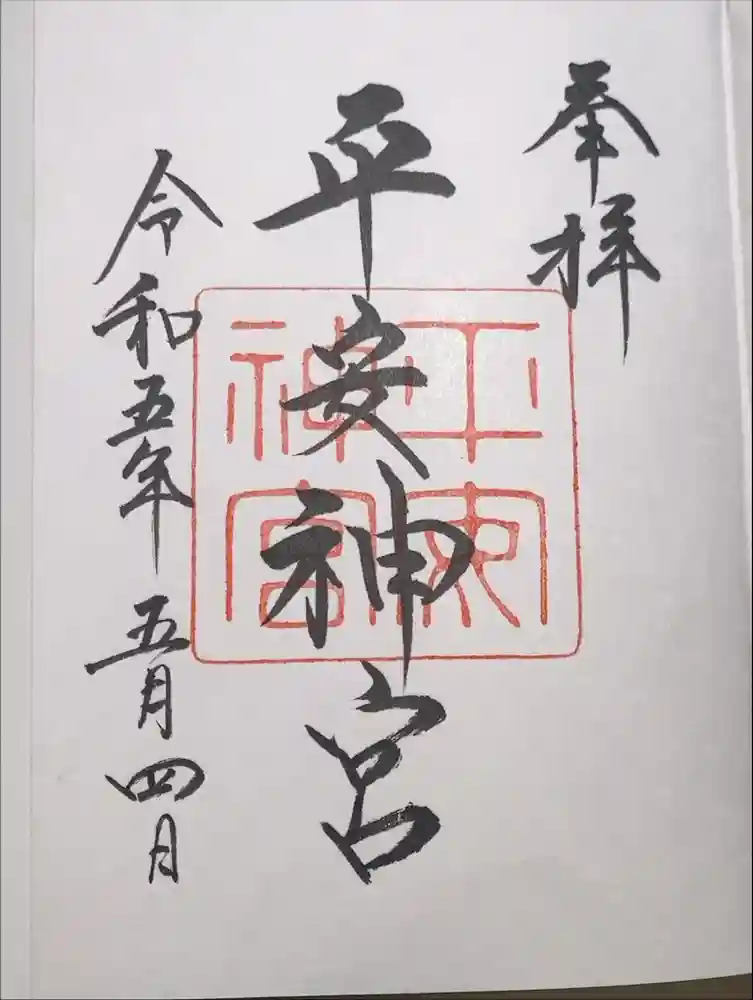 奉拝
平安神宮
令和五年五月四日
平安
神宮